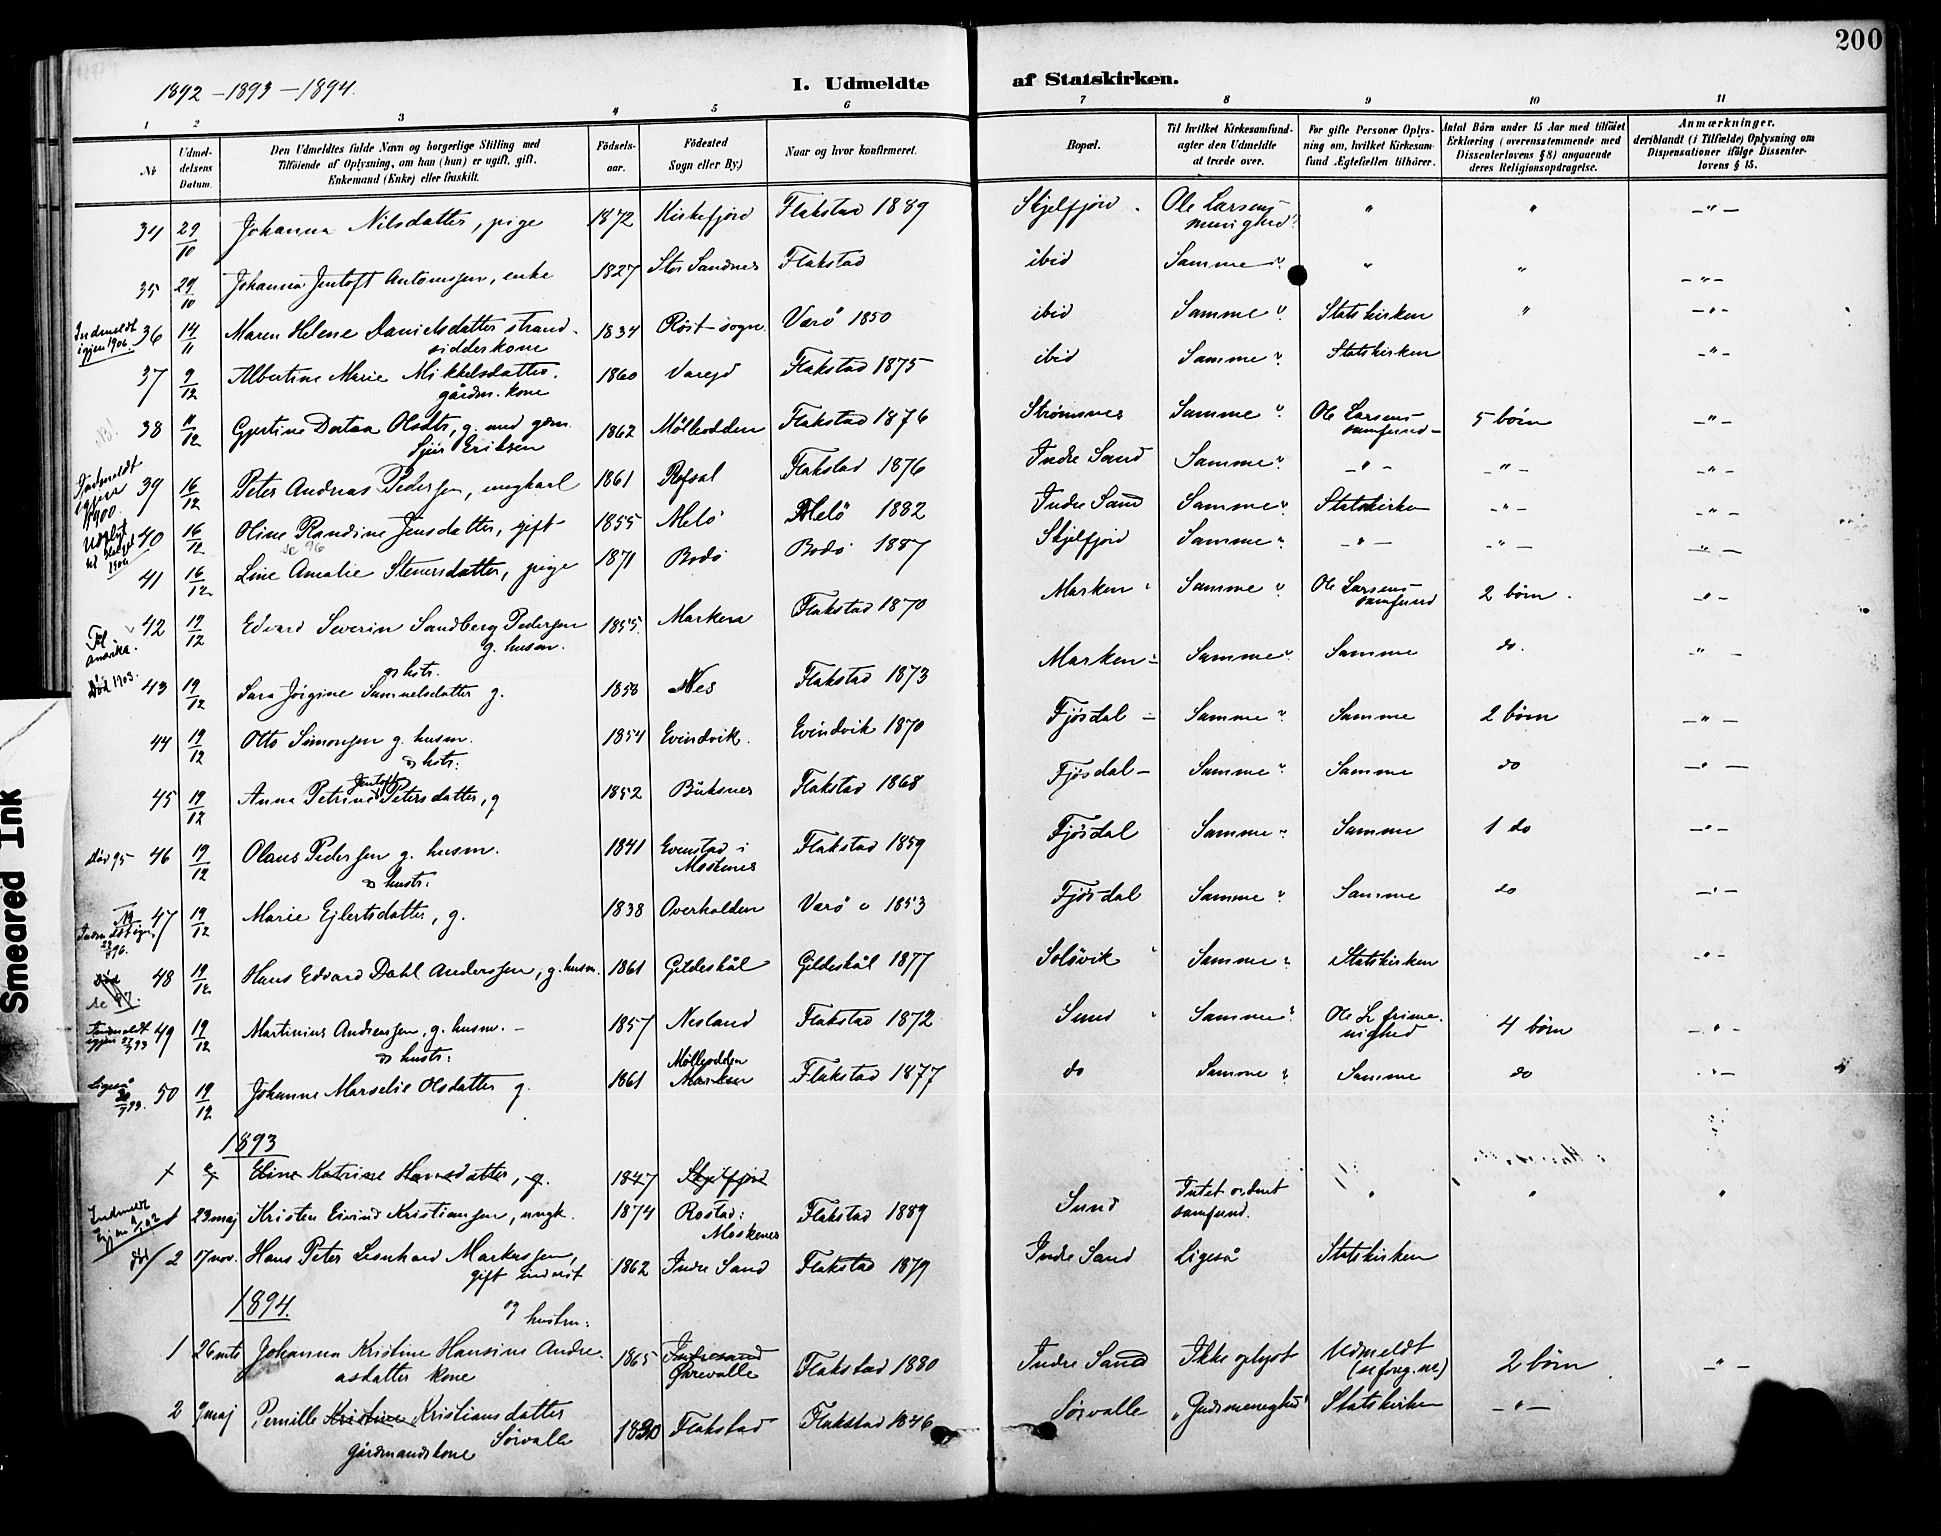 200
1892 - 1893 - 1894.
I. Udmeldte af Statskirken.
1 2 3 4 5 6 7 8 9 10 11
No
Udmeldelsens Datum.
Den Udmeldtes fulde Navn og borgerlige Stilling med Tilföiende af Oplysning, om han (hun) er ugift, gift, Enkemand (Enke) eller fraskilt.
Födselsaar.
Födested Sogn eller By.)
Naar og hvor konfirmeret.
Bopæl.
Til hvilket Kirkesamfund agter den Udmeldte at træde over.
For gifte Personer Oplysning om, hvilket Kirkesamfund Ægtefællen tilhörer.
Antal Börn under 15 Aar med tilföiet Erklæring (overensstemmende med Dissenterlovens § 8) angaaende deres Religionsopdragelse.
Anmærkninger, deriblandt (i Tilfælde) Oplysning om Dispensationer ifölge Dissenterlovens § 15.
34 29/10 Johanna Nilsdatter, pige 1872 Kirkefjord Flakstad 1889 Skjelfjord Ole Larsens menighed " " -"-
35 29/10 Johanna Jentoft Antonsen, enke 1827 Stor Sandnes Flakstad ibid Samme " " " -"-
Indmeldt igjen 1906. 36 14/11 Maren Helene Danielsdatter strandsidderkone 1834 Röst sogn Værö 1850 ibid Samme " Statskirken " -"-
37 9/12 Albertine Marie Mikkelsdatter, gårdm. kone 1860 Vareid Flakstad 1875 ibid Samme " Statskirken -"-
38 11/12 Gjertine Dortea Olsdtr, g. med gdm. Sjur Eriksen 1862 Mölleodden Flakstad 1876 Strömsnes Samme " Ole Larsens samfund 5 börn -"-
Indmeldt igjen 1900. 39 16/12 Peter Andreas Pedersen, ungkarl 1861 Refsal Flakstad 1876 Indre Sand Samme " -"- -"- -"-
40 16/12 Oline Randine Jensdatter, gift 1855 Melö Melö 1882 Indre Sand Samme " Statskirken -"- -"-
se 96
41 16/12 Line Amalie Stenersdatter, pige 1871 Bodö Bodö 1887 Skjelfjord Samme " -"- -"- -"-
Til Amerika. 42 19/12 Edvard Severin Sandberg Pedersen g. husm. 1855 Marken Flakstad 1870 Marken Samme " Ole Larsens samfund 2 börn -"-
og hstr.
Död 1903. 43 19/12 Sara Jörgine Samuelsdatter g. 1853 Nes Flakstad 1873 Marken Samme " Samme do. -"-
44 19/12 Otto Simonsen g. husm. 1854 Evindvik Evindvik 1870 Fjösdal Samme " Samme 2 börn -"-
og hstr:
45 19/12 Anna Petrine Jentoft Petersdatter, g 1852 Buksnes Flakstad 1868 Fjösdal Samme " Samme do -"-
död 95 46 19/12 Olaus Pedersen g. husm. 1841 Evenstad i Moskenes Flakstad 1859 Fjösdal Samme " Samme 1 do -"-
og hustr:
47 19/12 Marie Ejlertsdatter, g. 1838 Overhalden Værö 1853 Fjösdal Samme " Samme do -"-
Död 48 19/12 Hans Edvard Dahl Anderssen, g. husm. 1861 Gildeskål Gildeskål 1877 Solövik Samme " Statskirken -"-
Indmeldt igjen 49 19/12 Martinius Andreassen, g. husm. 1857 Nesland Flakstad 1872 Sund Samme " Ole L. frimenighed 4 börn -"-
og hustr:
Ligeså 50 19/12 Johanne Marselie Olsdatter g. 1861 Mölleodden Marken Flakstad 1877 do Samme " Samme do -"-
1893
Eline Katrine Hansdatter, g. 1847 Skjelfjord
Indmeldt 1 23 maj Kristen Eivind Kristiansen, ungk. 1874 Rostad: Moskenes Flakstad 1889 Sund Intet ordnet samfund. " " "
död 2 17 nov. Hans Peter Leonhard Markussen, gift inderst 1862 Indre Sand Flakstad 1879 Indre Sand Ligeså Statskirken
1894.
og hustru:
1 26 mts Johanna Kristine Hansine Andreasdatter kone 1865 Indresand Örevalle Flakstad 1880 Indre Sand Ikke oplyst Udmeldt (se foreg. no.) 2 börn -"-
2 9 maj Pernille Kristine Kristiansdatter gårdmandskone Sörvalle 1830 Flakstad Flakstad 1846 Sörvalle "Gudsmenighed" Statskirken -"-
Smeared Ink